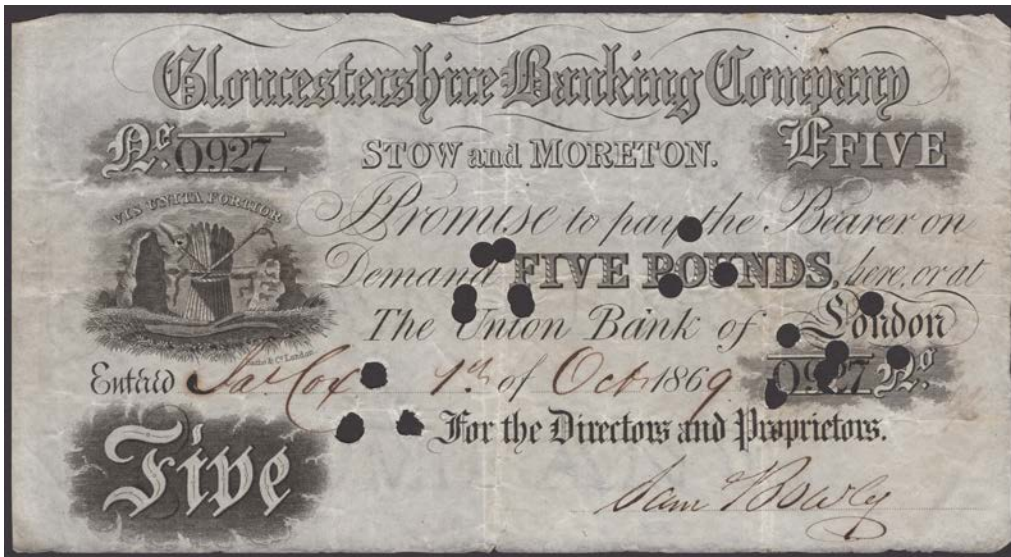 Gloucestershire Banking Company
No. 0927
STOW and MORETON.
£FIVE
VIS UNITA FORTIOR
I Promise to pay the Bearer on
Demand FIVE POUNDS, here, or at
The Union Bank of London
Entered Jas. Cox 1st of Oct. 1869 0927 No.
For the Directors and Proprietors.
Five
Sam Bowly